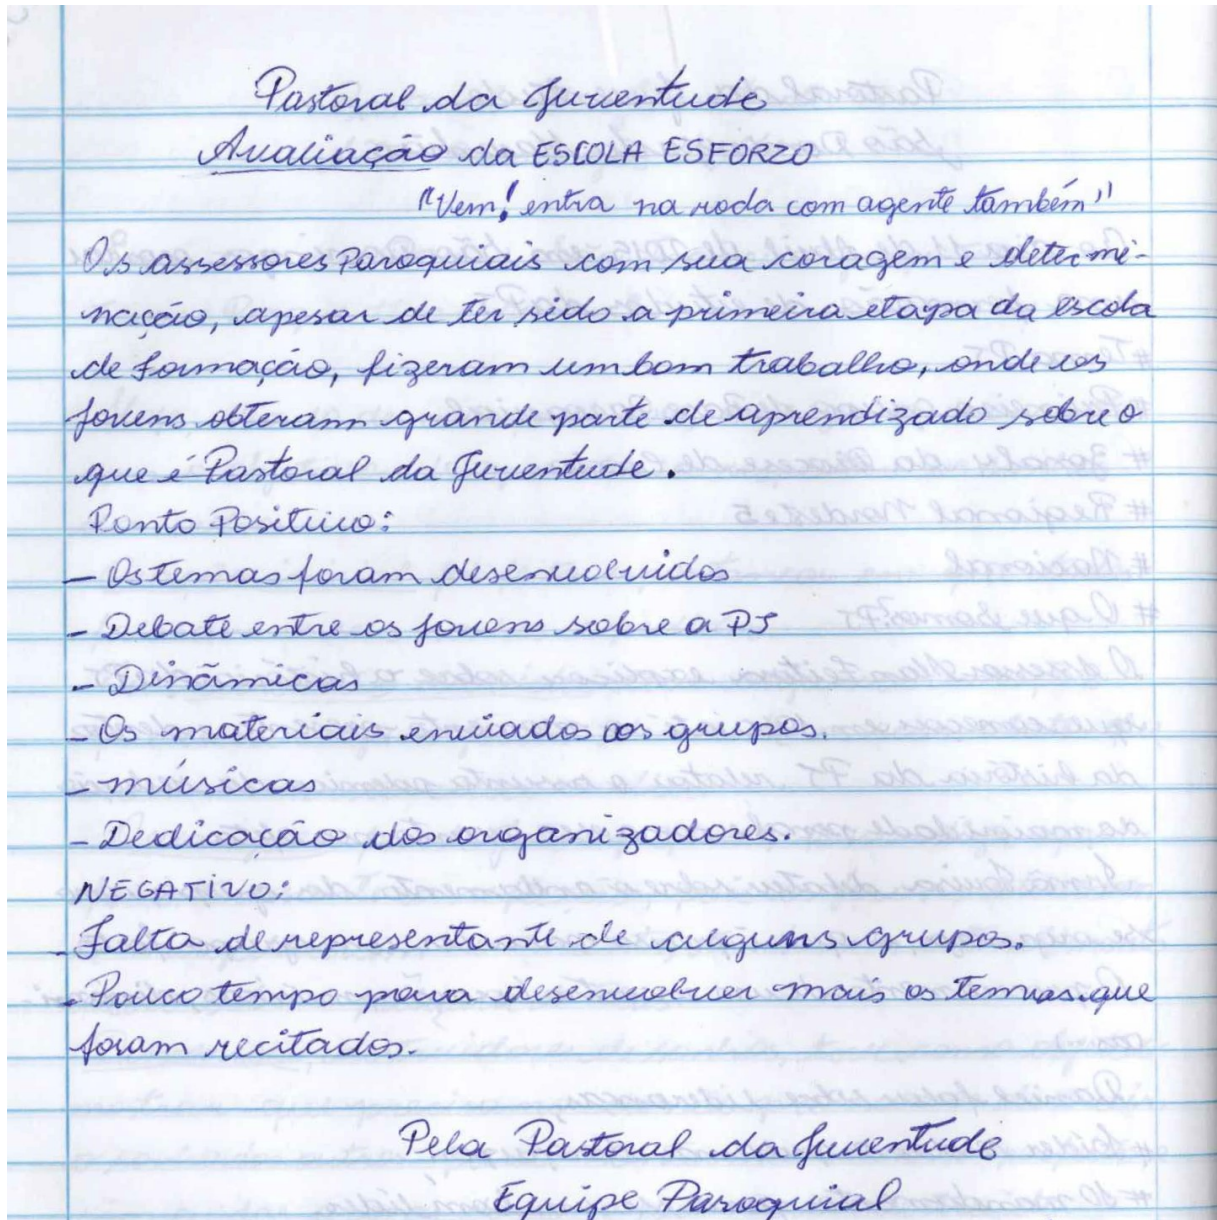 Pastoral da Juventude
Avaliação da ESCOLA ESFORZO
"Vem! entra na roda com agente também"
Os assessores Paroquiais com sua coragem e determi-
nação, apesar de ter sido a primeira etapa da escola
de formação, fizeram um bom trabalho, onde os
jovens obteram grande parte de aprendizado sobre o
que é Pastoral da Juventude.
Ponto Positivo:
- Os temas foram desenvolvidos
- Debate entre os jovens sobre a PJ
- Dinâmicas
- Os materiais enviados aos grupos.
- músicas
- Dedicação dos organizadores.
NEGATIVO:
- Falta de representante de alguns grupos.
- Pouco tempo para desenvolver mais os temas que
foram recitados.
Pela Pastoral da Juventude
Equipe Paroquial